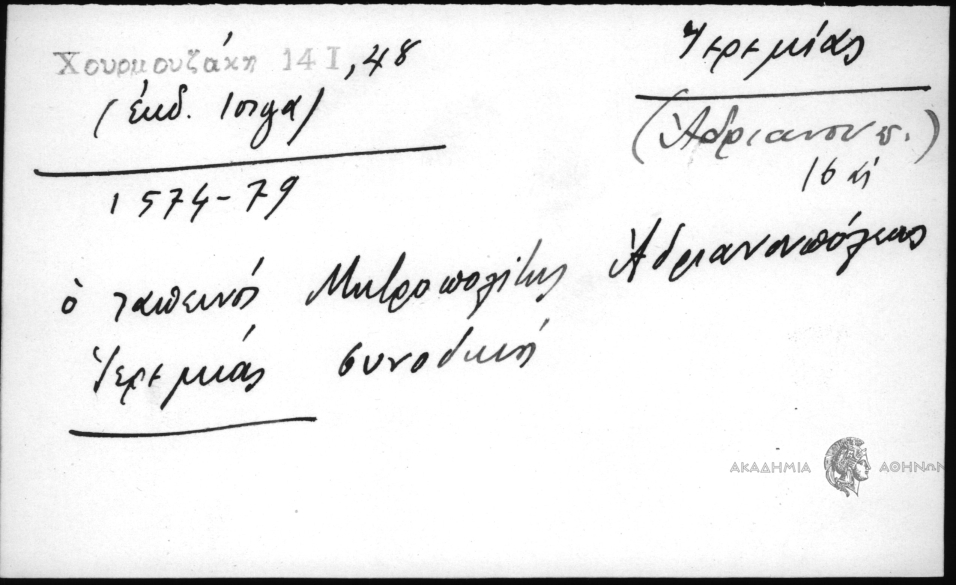 Χουρμουζάκη 14 I, 48
(ἔκδ. Ἰοργα)
1574-79
Ἱερεμίας
(Ἀδριανουπ.)
16 αἰ
ὁ ταπεινός Μητροπολίτης Ἀδριανουπόλεως
Ἱερεμίας συνοδικῇ
ΑΚΑΔΗΜΙΑ ΑΘΗΝΩΝ